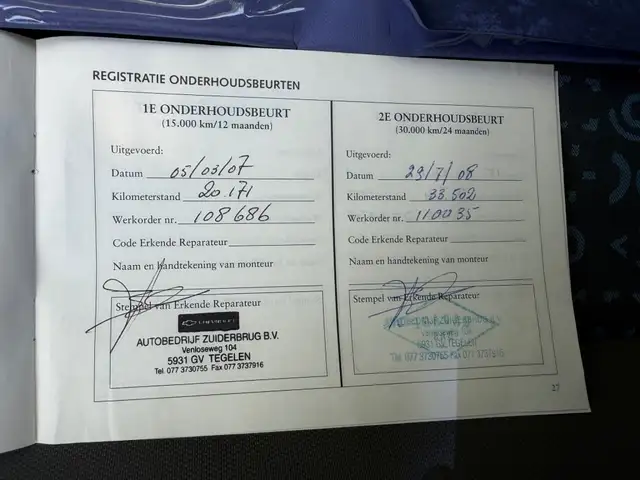 REGISTRATIE ONDERHOUDSBEURTEN
1E ONDERHOUDSBEURT
(15.000 km/12 maanden)
Uitgevoerd:
Datum 05/03/07
Kilometerstand 20.171
Werkorder nr. 108686
Code Erkende Reparateur
Naam en handtekening van monteur
Stempel van Erkende Reparateur
CHEVROLET
AUTOBEDRIJF ZUIDERBRUG B.V.
Venloseweg 104
5931 GV TEGELEN
Tel. 077 3730755 Fax 077 3737916
2E ONDERHOUDSBEURT
(30.000 km/24 maanden)
Uitgevoerd:
Datum 29/7/08
Kilometerstand 33.502
Werkorder nr. 110035
Code Erkende Reparateur
Naam en handtekening van monteur
Stempel van Erkende Reparateur
Venloseweg 104
5931 GV TEGELEN
Tel 077-3730755 Fax 077 3737916
27